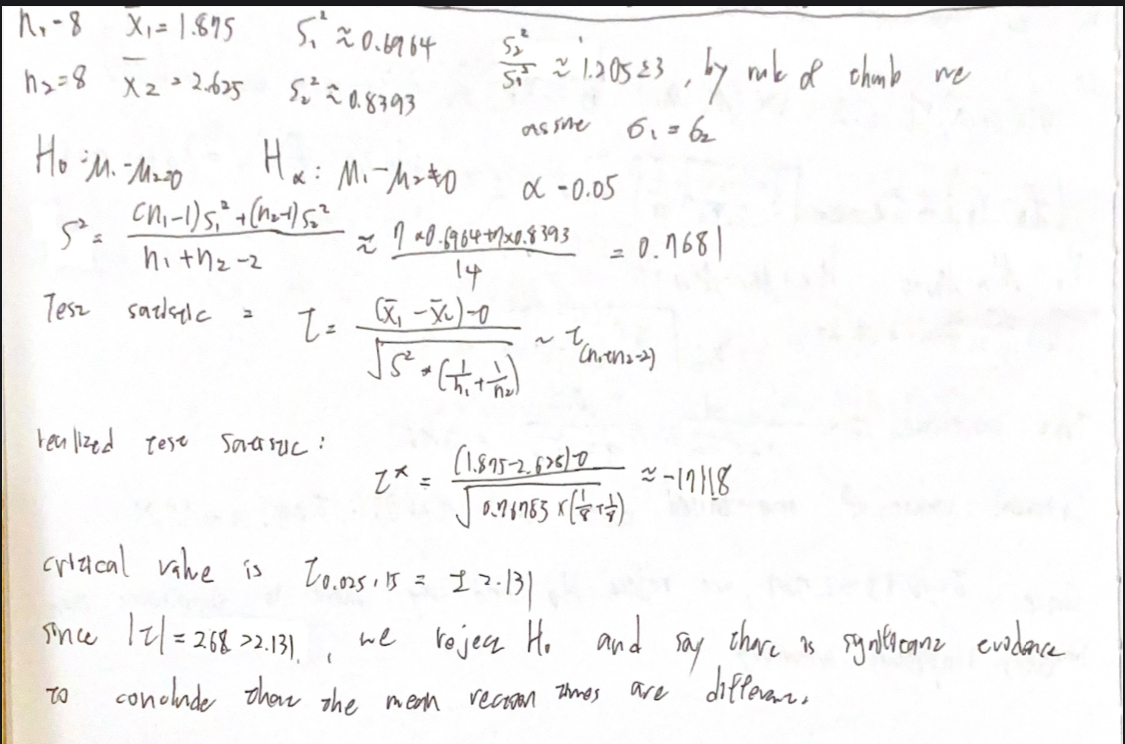 n₁-8 x̄₁=1.875 S₁² ≈ 0.6964 S₂²/S₁² ≈ 1.205≤3, by rule of thumb we
n₂=8 x̄₂=2.625 S₂² ≈ 0.8393 assme σ₁=σ₂
H₀: μ₁-μ₂=0 Hα: μ₁-μ₂≠0 α-0.05
S² = ((n₁-1)S₁²+(n₂-1)S₂²)/(n₁+n₂-2) ≈ (7×0.6964+7×0.8393)/14 = 0.7681
Test satistic = t = ((x̄₁-x̄₂)-0)/√(S²*(1/n₁+1/n₂)) ~ t(n₁+n₂-2)
realized test satistic:
t* = ((1.875-2.625)-0)/√(0.76785×(1/8+1/8)) ≈ -1.7118
critical value is t₀.₀₂₅,₁₅ = ±2.131
since |t|=268>2.131, we reject H₀ and say there is significant evidence
to conclude that the mean rection times are different.